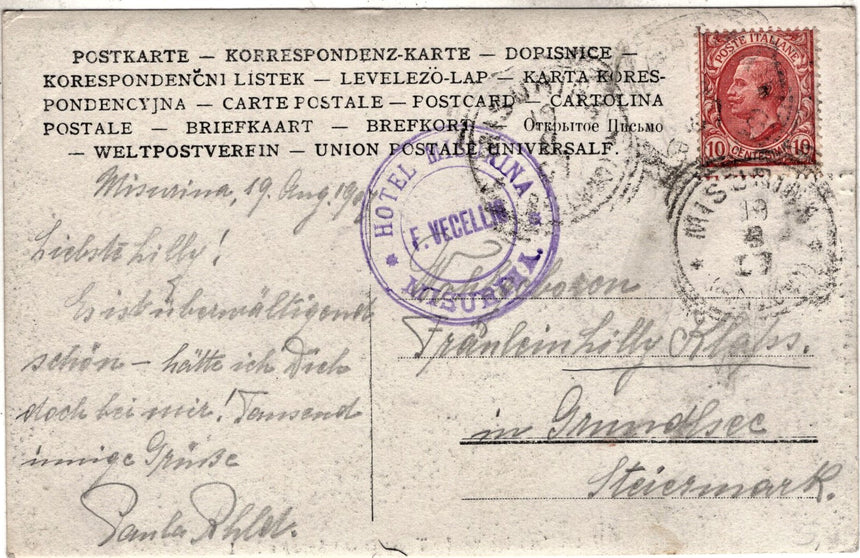 POSTKARTE — KORRESPONDENZ-KARTE — DOPISNICE —
KORESPONDENČNI LÍSTEK — LEVELEZÖ-LAP — KARTA KORES-
PONDENCYJNA — CARTE POSTALE — POSTCARD — CARTOLINA
POSTALE — BRIEFKAART — BREFKORT Открытое Письмо
— WELTPOSTVEREIN — UNION POSTALE UNIVERSALE.
POSTE ITALIANE
10 CENTESIMI 10
HOTEL MISURINA
F. VECELLIO
MISURINA.
MISURINA
19
8
07
Misurina, 19. Aug. 190
Liebste Lilly!
Es ist überwältigend
schön — hätte ich Dich
doch bei mir! Tausend
innige Grüße
Paula
Fräulein Lilly
in Grundlsee
Steiermark.